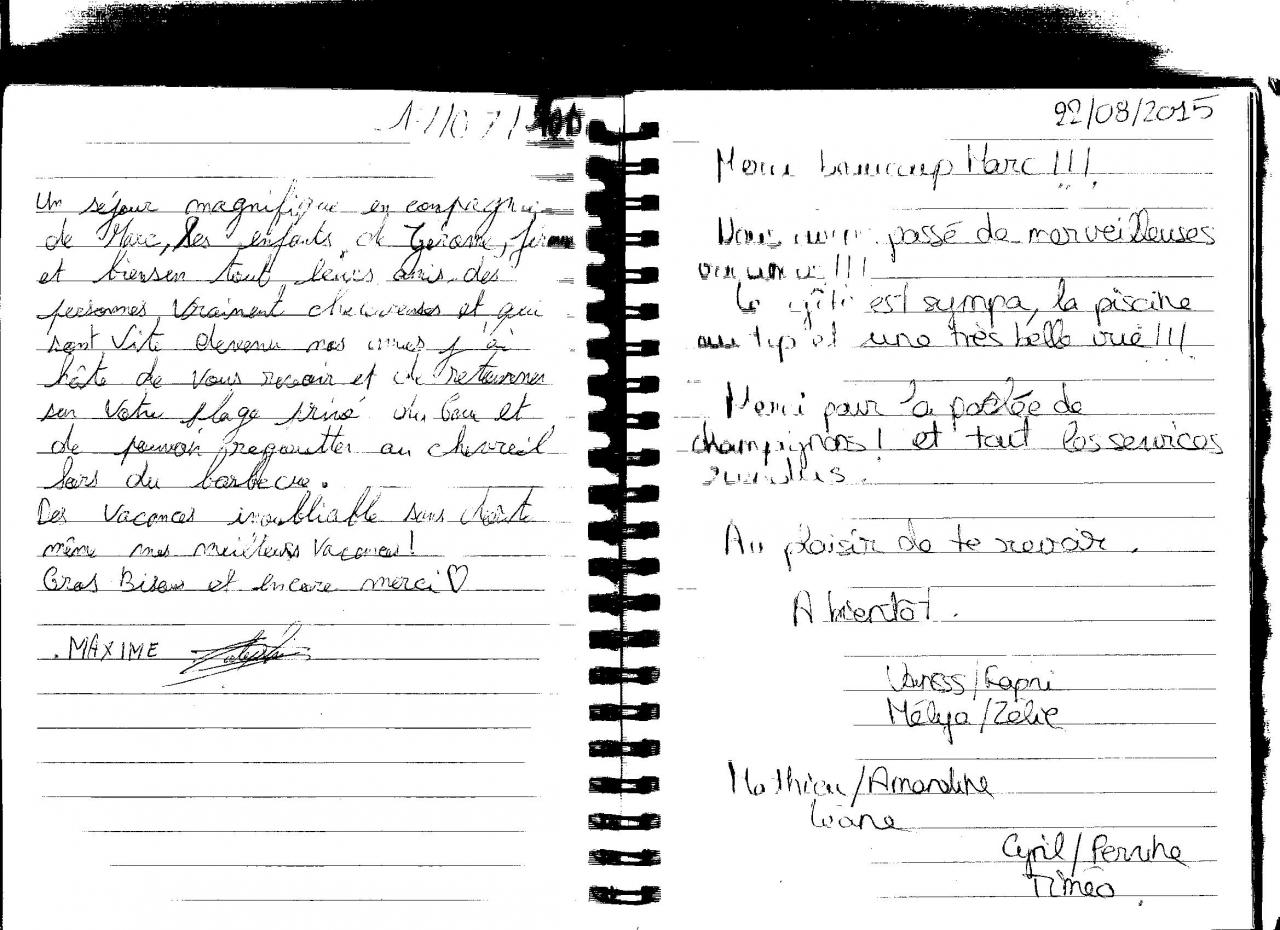 17/07/
Un séjour magnifique en compagnie
de Marc, les enfants de Gérome,
et biensen tout leurs amis des
personnes vraiment cheureuses et qui
sont vite devenu nos amies j'ai
hâte de vous revoir et de retourner
sur votre plage privé du lac et
de pouvoir regoutter au chevreil
lors du barbecue.
Des vacances inoubliable sans doute
même mes meilleurs vacances!
Gros Bisous et encore merci♡
.MAXIME
22/08/2015
Merci beaucoup Marc!!!
Nous avons passé de merveilleuses
vacances!!!
Le gîte est sympa, la piscine
au top et une très belle vue!!!
Merci pour la poêlée de
champignons! et tout les services
rendus.
Au plaisir de te revoir.
A bientôt.
Vaness/Kapri
Mélya/Zélie
Mathieu/Amandine
Loane
Cyril/Perrine
Timéo